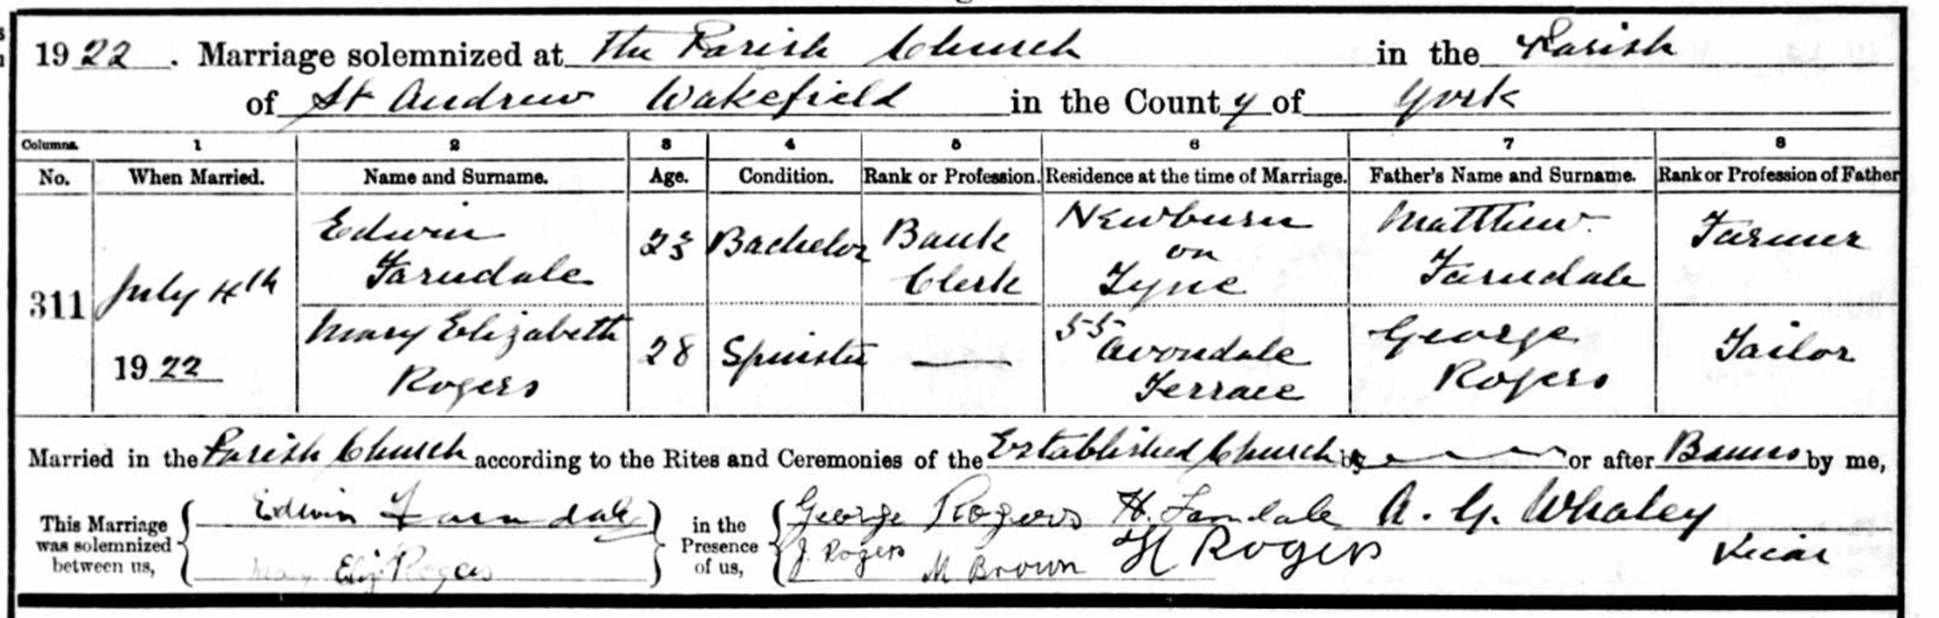 1922. Marriage solemnized at The Parish Church in the Parish
of St Andrew Wakefield in the County of York
Columns. 1 2 3 4 5 6 7 8
No. When Married. Name and Surname. Age. Condition. Rank or Profession. Residence at the time of Marriage. Father's Name and Surname. Rank or Profession of Father
311 July 4th 1922
Edwin Farndale 23 Bachelor Bank Clerk Newburn on Tyne Matthew Farndale Farmer
Mary Elizabeth Rogers 28 Spinster — 55 Avondale Terrace George Rogers Tailor
Married in the Parish Church according to the Rites and Ceremonies of the Established Church by — or after Banns by me,
This Marriage was solemnized between us,
Edwin Farndale
Mary Eliz Rogers
in the Presence of us,
George Rogers H. Farndale A. G. Whaley
J. Rogers M Brown H Rogers Vicar